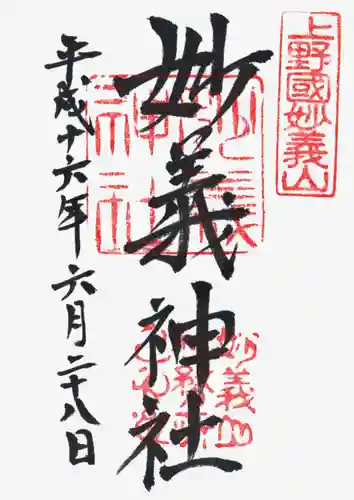 上野國妙義山
妙義神社
平成十六年六月二十八日